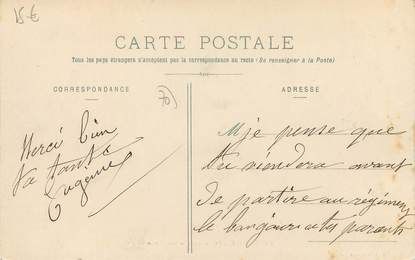 15€
CARTE POSTALE
Tous les pays étrangers n'acceptent pas la correspondance au recto (Se renseigner à la Poste)
CORRESPONDANCE
ADRESSE
Merci bien
Ta tante
Eugénie
je pense que
tu viendera avant
de partire au régiment
le bonjour a tes parents